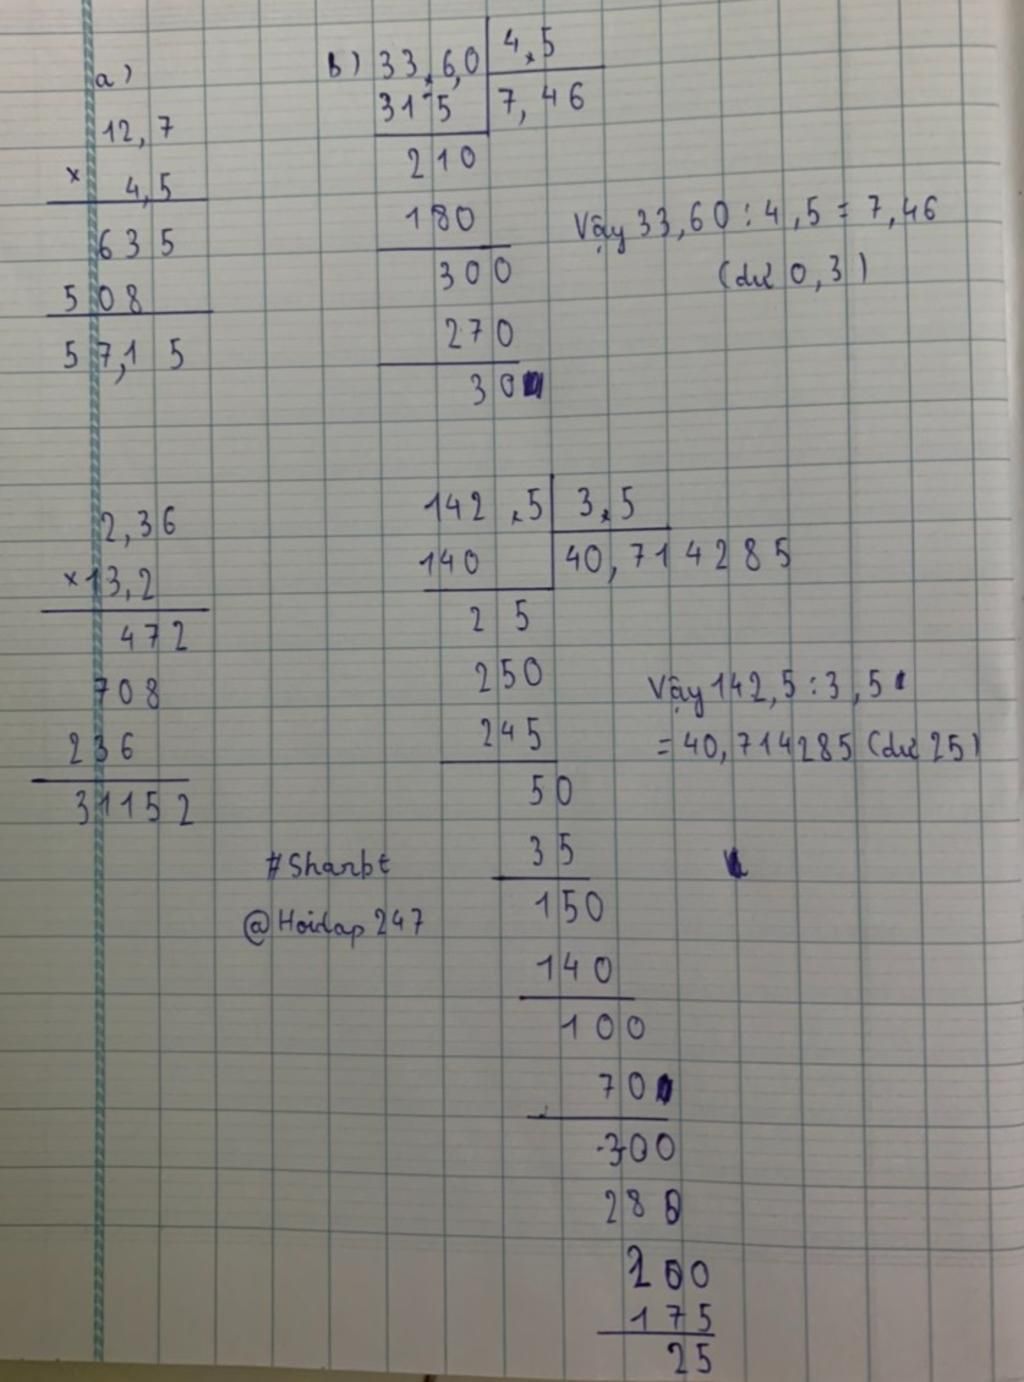 a)
12,7
× 4,5
635
508
57,1 5
b) 33,6,0 4,5
315 7,46
210
180
300
270
30
Vậy 33,60 : 4,5 = 7,46
(dư 0,3)
2,36
× 13,2
472
708
236
31152
142,5 3,5
140 40,714285
2 5
250
245
50
35
150
140
100
70
300
280
200
175
25
Vậy 142,5 : 3,5
= 40,714285 (dư 25)
#Sharbt
@Hoidap247